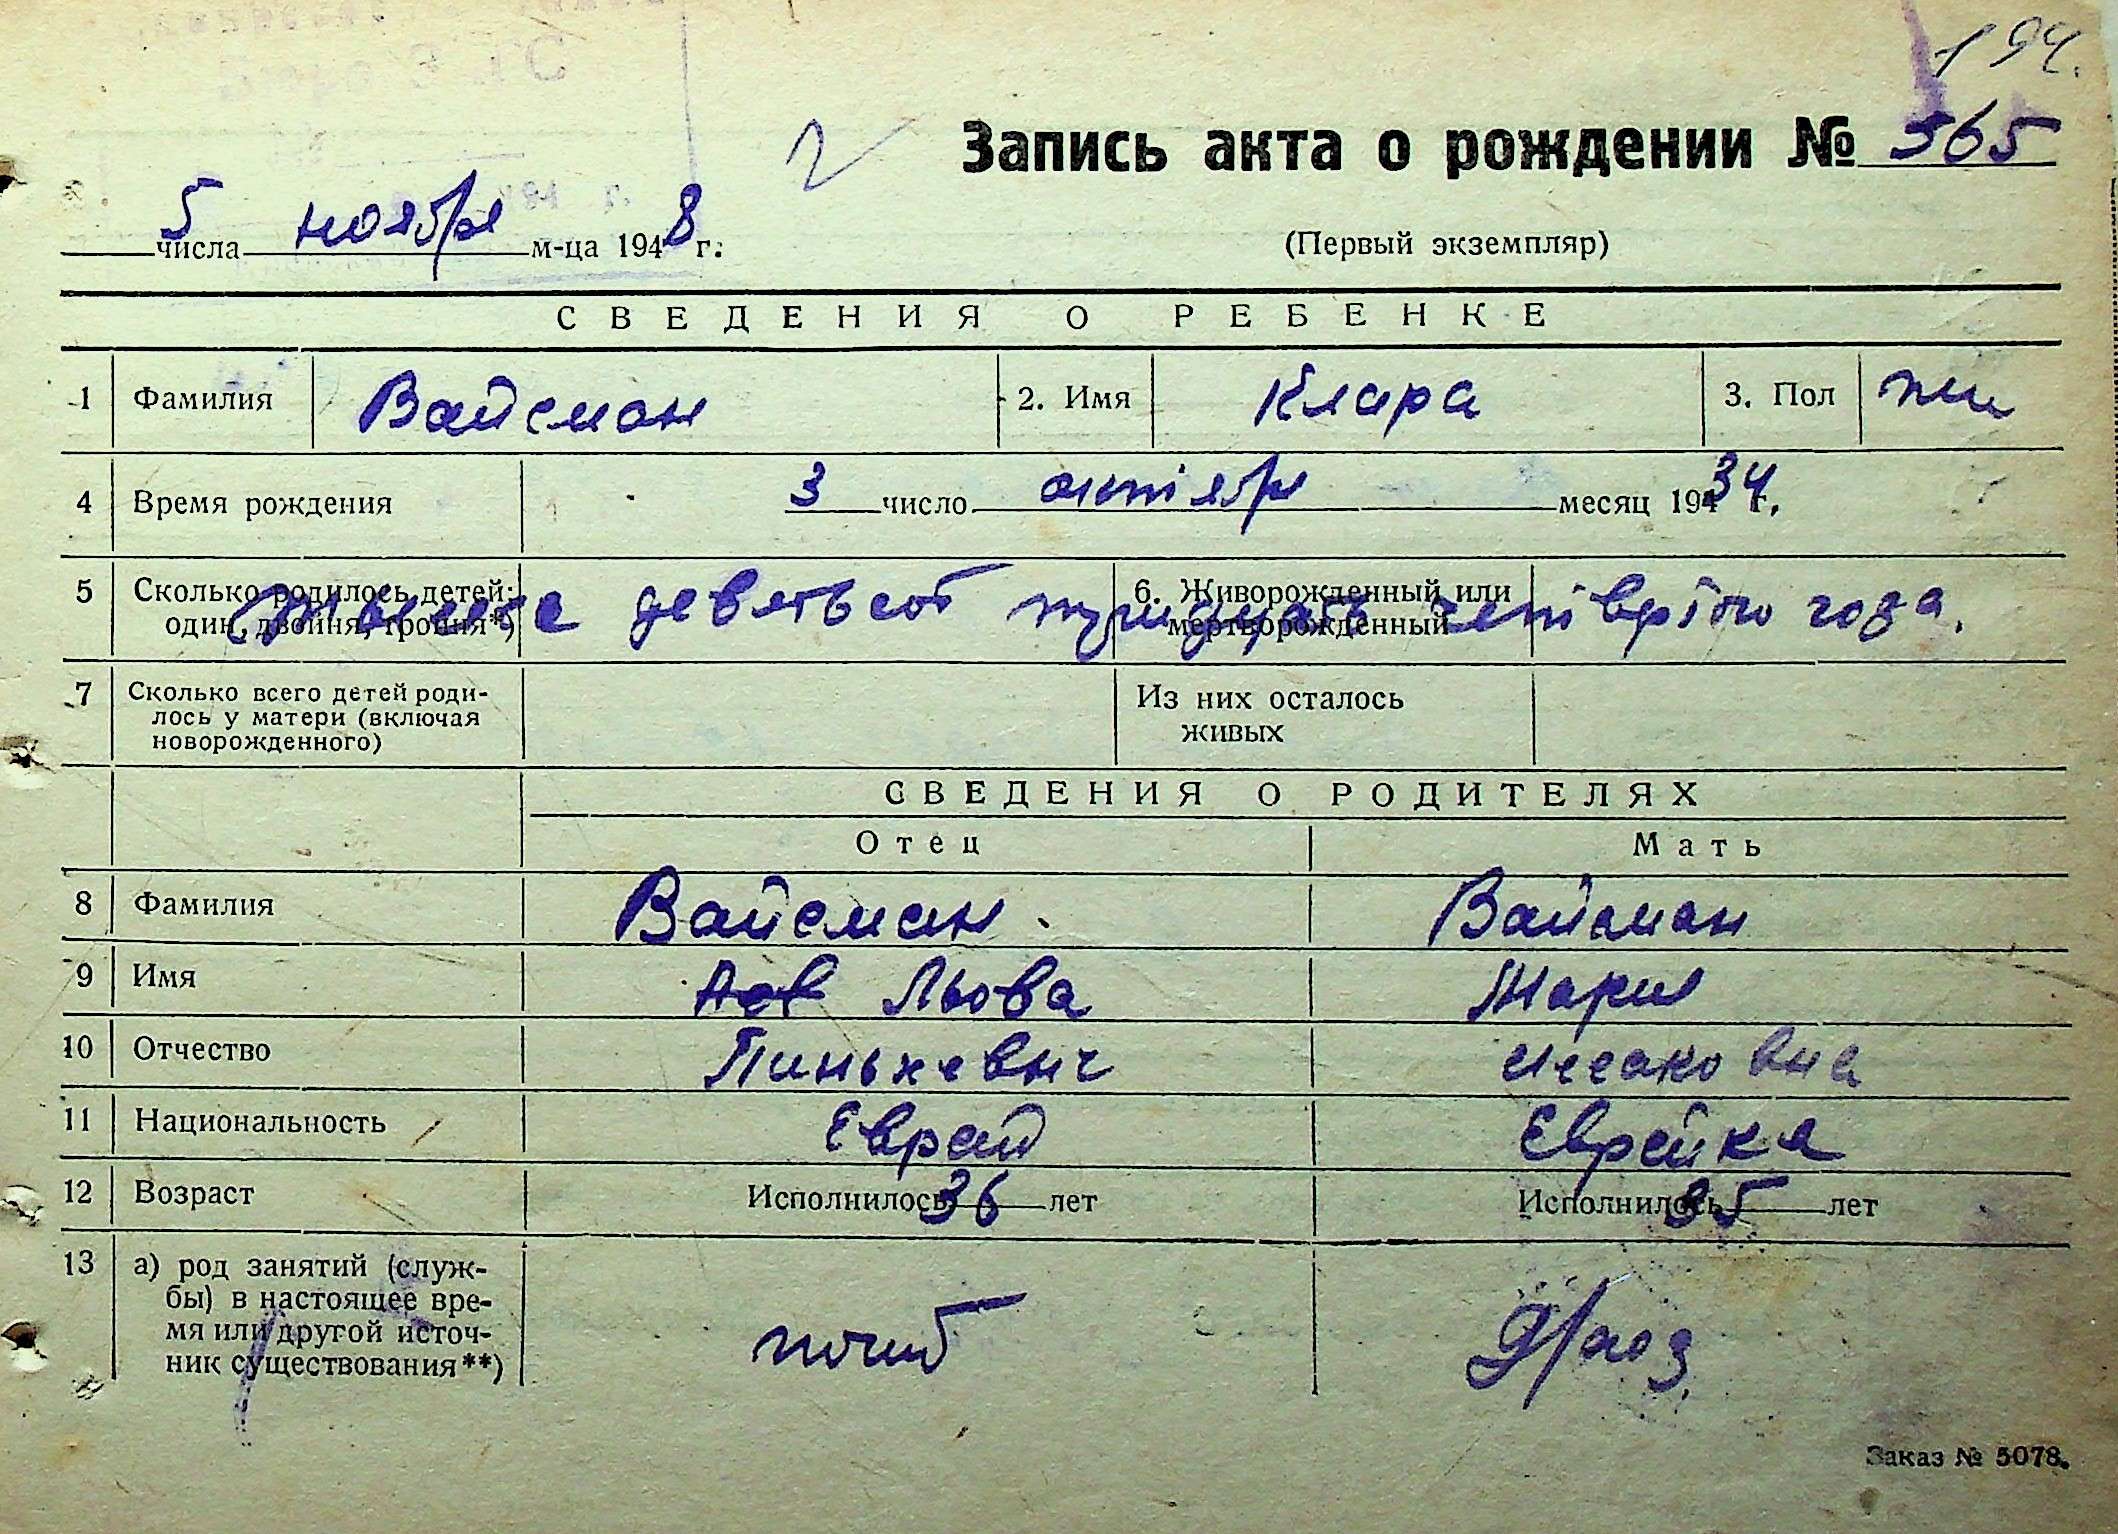 194.
Запись акта о рождении № 565
5 числа ноября м-ца 1948 г.
(Первый экземпляр)
СВЕДЕНИЯ О РЕБЕНКЕ
1 Фамилия Вайсман 2. Имя Клара 3. Пол жен
4 Время рождения 3 число октября месяц 19434 г.
5 Сколько родилось детей: 6. Живорожденный или
один, двойня, тройня*) мертворожденный
Тысяча девятьсот тридцать четвертого года.
7 Сколько всего детей роди- Из них осталось
лось у матери (включая живых
новорожденного)
СВЕДЕНИЯ О РОДИТЕЛЯХ
Отец Мать
8 Фамилия Вайсман Вайсман
9 Имя Льова Мария
10 Отчество Пинькевич Иссаковна
11 Национальность Еврей Еврейка
12 Возраст Исполнилось 36 лет Исполнилось 35 лет
13 а) род занятий (служ-
бы) в настоящее вре-
мя или другой источ-
ник существования**)
погиб
Заказ № 5078.